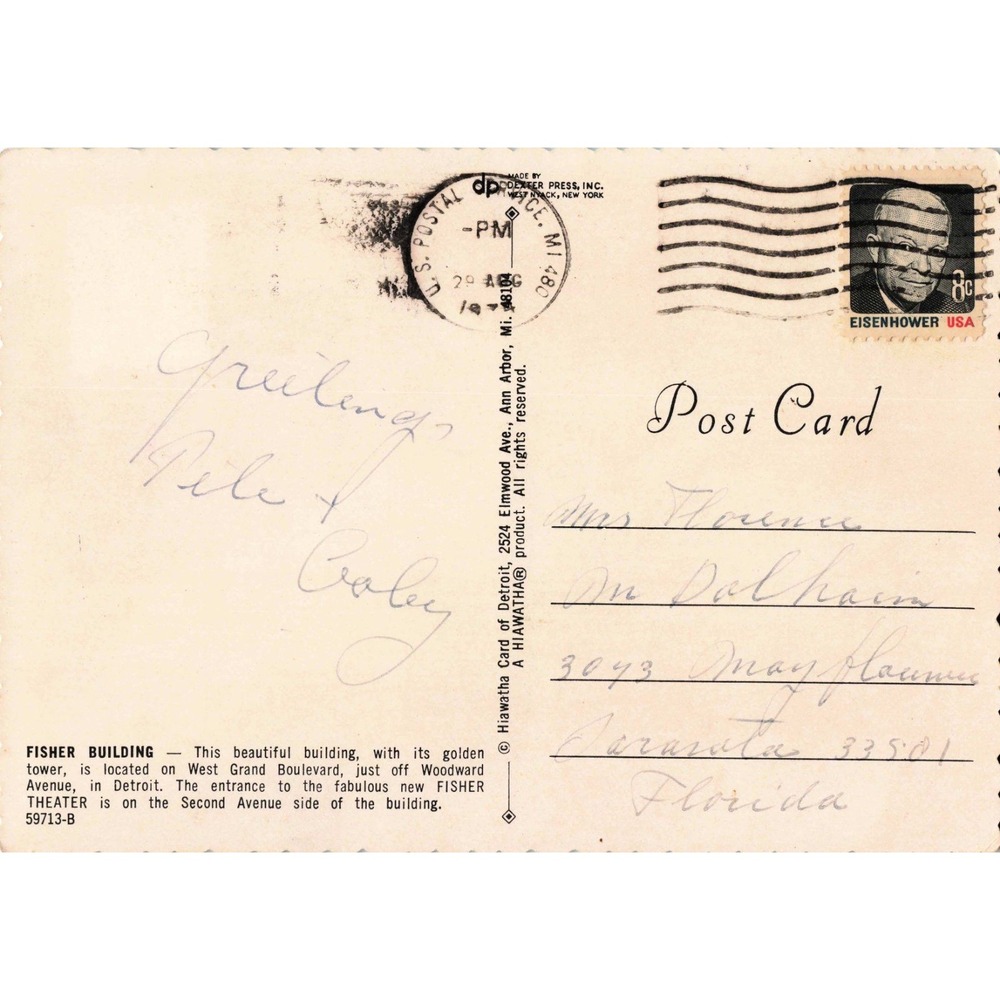 MADE BY
dp DEXTER PRESS, INC.
WEST NYACK, NEW YORK
U.S. POSTAL SERVICE. MI 480
-PM
29 AUG
8c
EISENHOWER USA
Post Card
Greetings
Pete +
Mrs Florence
Mc Dalhaim
3093 Mayflower
Sarasota 33581
Florida
© Hiawatha Card of Detroit, 2524 Elmwood Ave., Ann Arbor, Mi. 48104
A HIAWATHA® product. All rights reserved.
FISHER BUILDING — This beautiful building, with its golden
tower, is located on West Grand Boulevard, just off Woodward
Avenue, in Detroit. The entrance to the fabulous new FISHER
THEATER is on the Second Avenue side of the building.
59713-B